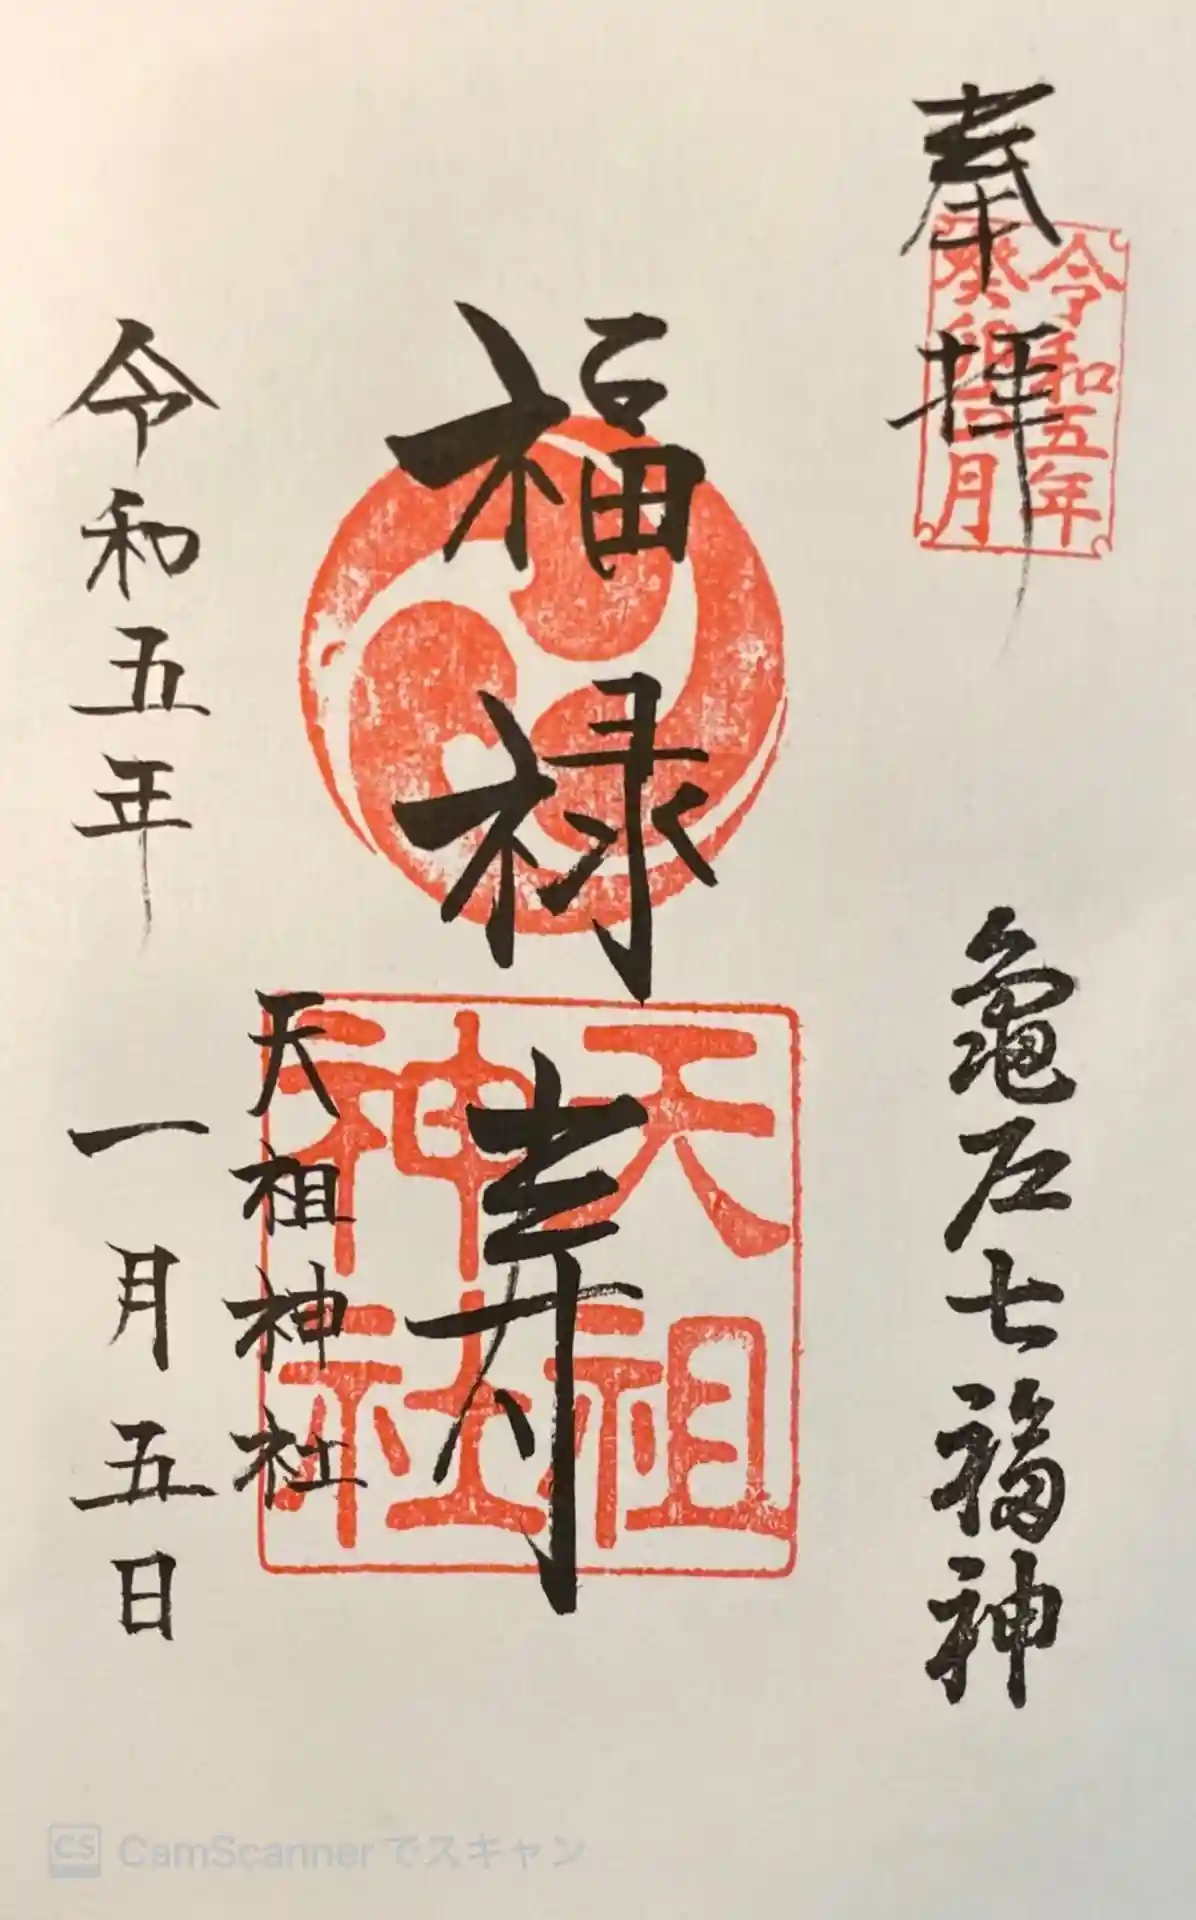 奉拝
令和五年
癸卯正月
亀戸七福神
福禄寿
天祖神社
天祖神社
令和五年 一月五日
CamScannerでスキャン